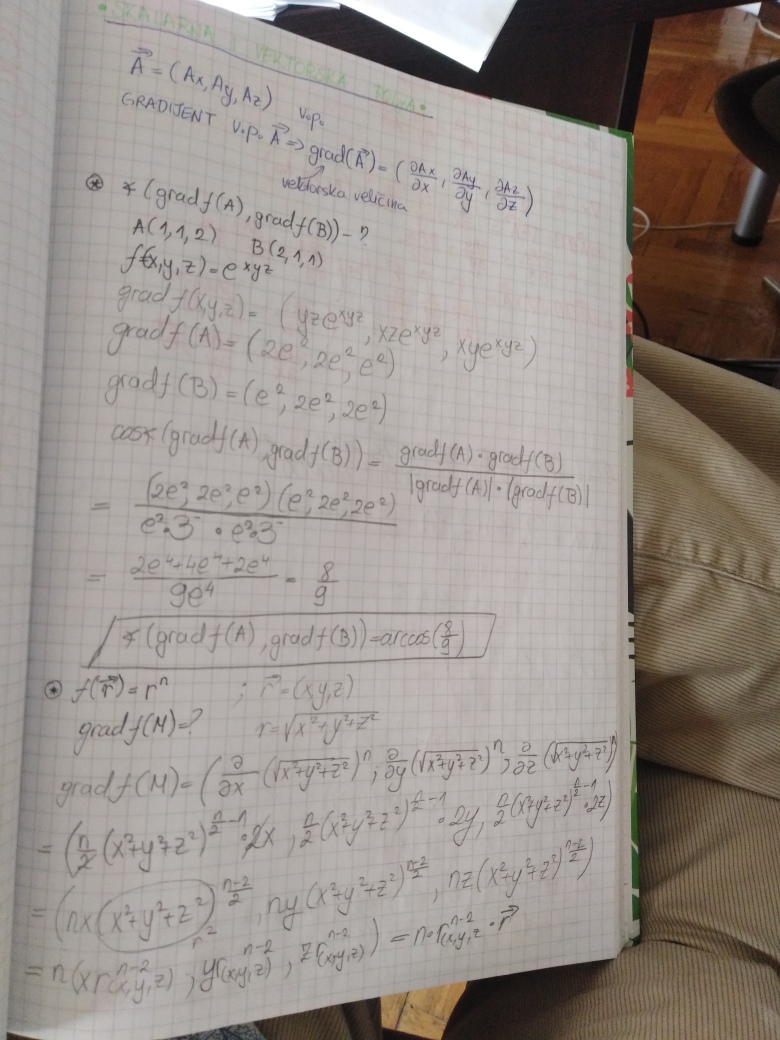 • SKALARNA I VEKTORSKA POLJA •
A⃗ = (Ax, Ay, Az)
v.p.
GRADIJENT v.p. A⃗ => grad(A⃗) = (∂Ax/∂x, ∂Ay/∂y, ∂Az/∂z)
vektorska veličina
⊛ ∢(gradf(A), gradf(B)) - ?
A(1,1,2) B(2,1,1)
f(x,y,z) = e^xyz
gradf(x,y,z) = (yze^xyz, xze^xyz, xye^xyz)
gradf(A) = (2e², 2e², e²)
gradf(B) = (e², 2e², 2e²)
cos∢(gradf(A), gradf(B)) = gradf(A)·gradf(B) / |gradf(A)|·|gradf(B)|
= (2e², 2e², e²)(e², 2e², 2e²) / e²·3 · e²·3
= 2e⁴+4e⁴+2e⁴ / 9e⁴ = 8/9
∢(gradf(A), gradf(B)) = arccos(8/9)
⊛ f(r⃗) = rⁿ ; r⃗ = (x,y,z)
gradf(M) = ? r = √(x²+y²+z²)
gradf(M) = (∂/∂x (√(x²+y²+z²))ⁿ, ∂/∂y (√(x²+y²+z²))ⁿ, ∂/∂z (√(x²+y²+z²))ⁿ)
= (n/2 (x²+y²+z²)^(n/2-1) · 2x, n/2 (x²+y²+z²)^(n/2-1) · 2y, n/2 (x²+y²+z²)^(n/2-1) · 2z)
= (nx(x²+y²+z²)^(n-2/2), ny(x²+y²+z²)^(n-2/2), nz(x²+y²+z²)^(n-2/2))
r²
= n(xr^(n-2)(x,y,z), yr^(n-2)(x,y,z), zr^(n-2)(x,y,z)) = n·r^(n-2)(x,y,z) · r⃗